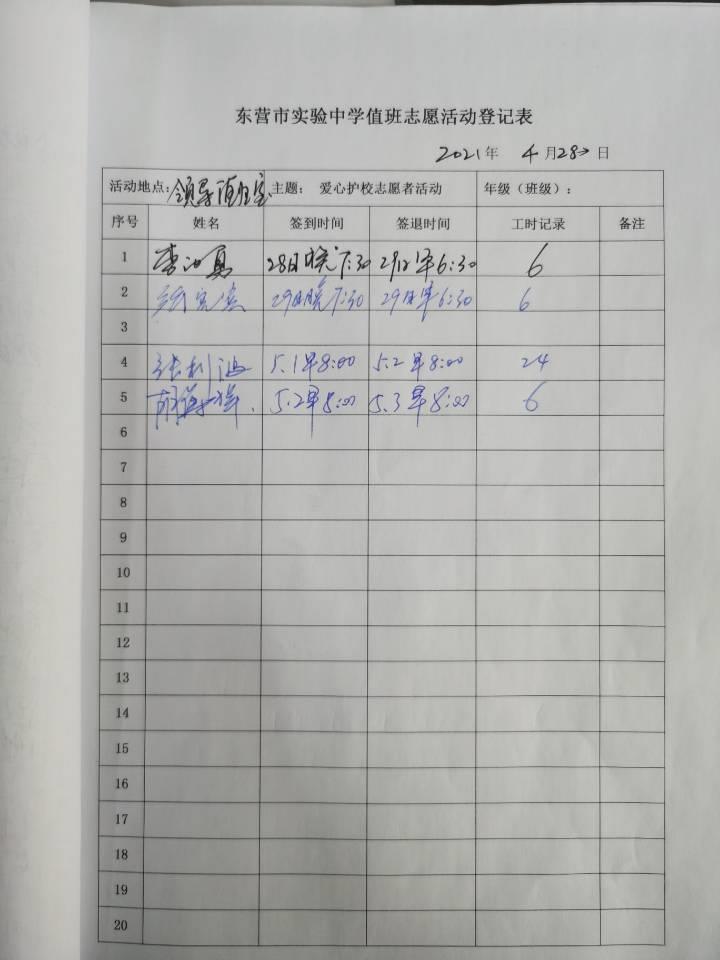 东营市实验中学值班志愿活动登记表
2021年 4月28日
活动地点：领导值班室 主题： 爱心护校志愿者活动 年级（班级）：
序号 姓名 签到时间 签退时间 工时记录 备注
1 28日晚7:30 29日早6:30 6
2 29日晚7:30 29日早6:30 6
3
4 张利波 5.1早8:00 5.2早8:00 24
5 5.2早8:00 5.3早8:00 6
6
7
8
9
10
11
12
13
14
15
16
17
18
19
20